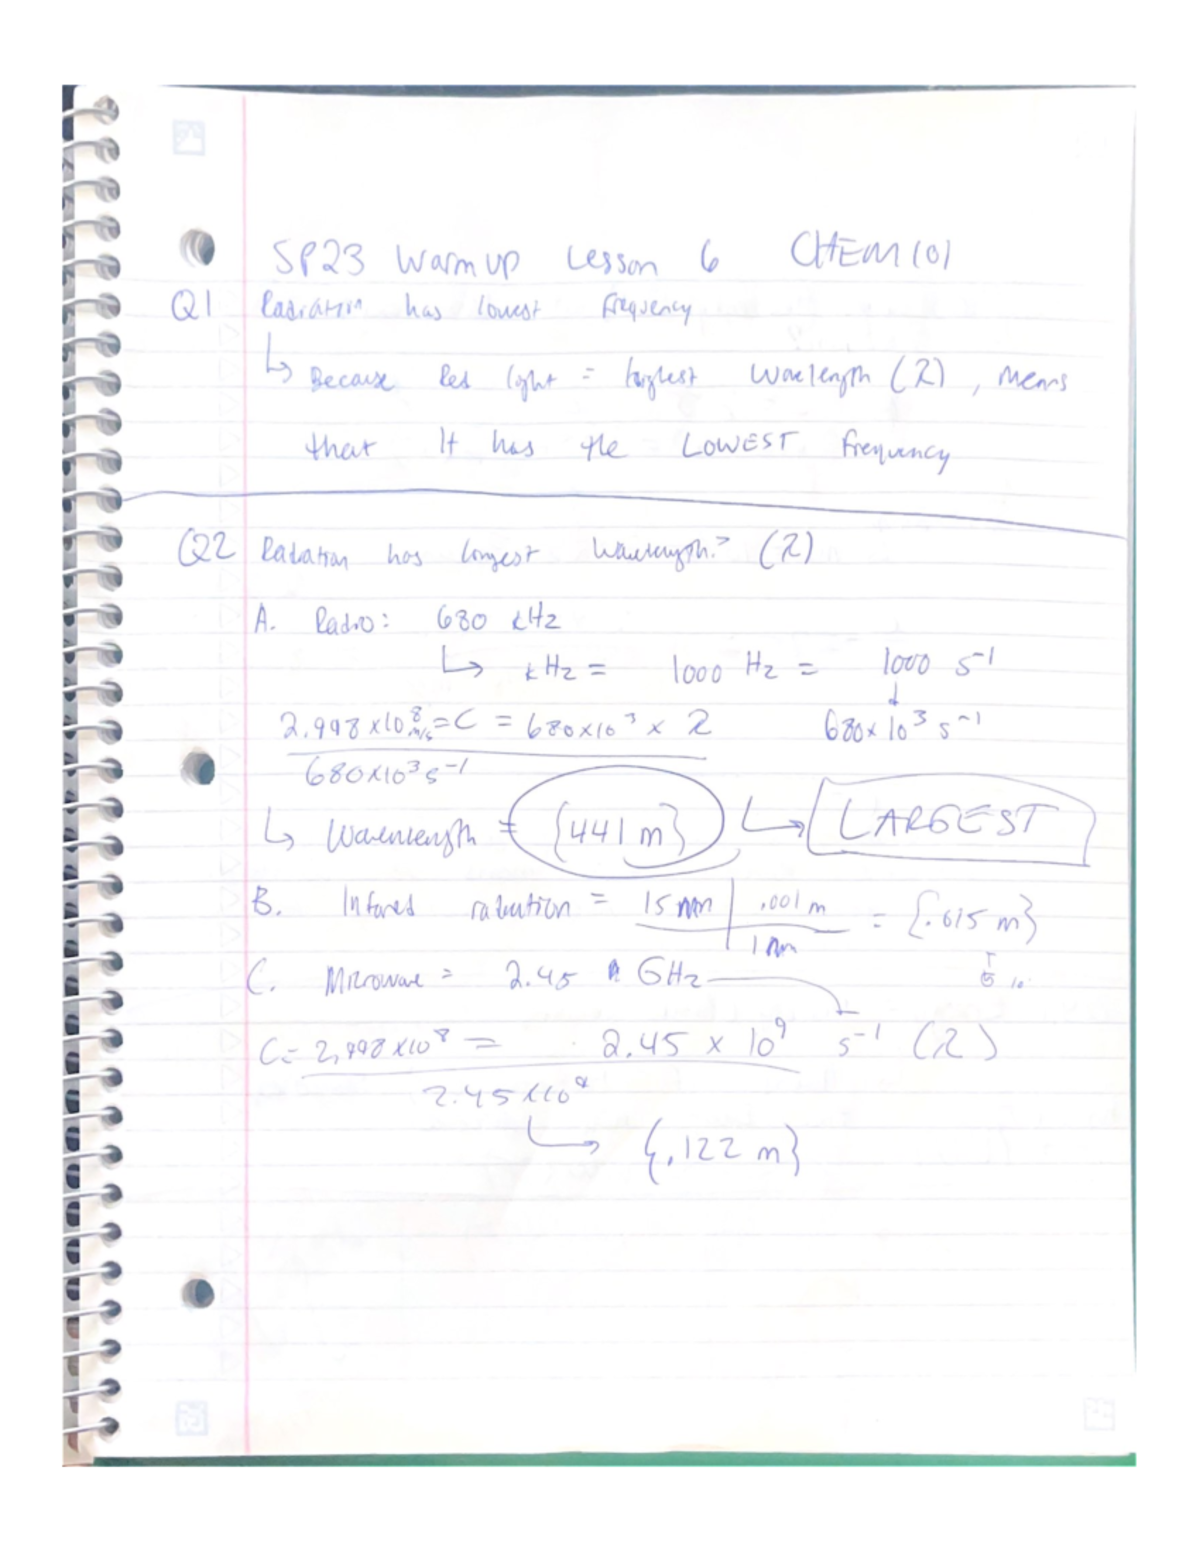 SP23 Warm up Lesson 6 CHEM 101
Q1 Radiation has lowest frequency
↳ Because Red light = largest wavelength (λ), means
that It has the LOWEST frequency
Q2 Radiation has longest wavelength? (λ)
A. Radio: 680 kHz
↳ kHz = 1000 Hz = 1000 s⁻¹
2.998 x10⁸ m/s = C = 680x10³ x λ 680x10³ s⁻¹
680x10³ s⁻¹
↳ Wavelength = {441 m} ↳ LARGEST
B. Infared radiation = 15 mm | .001 m = {.015 m}
1 mm
C. Microwave = 2.45 GHz
C = 2.998 x10⁸ = 2.45 x 10⁹ s⁻¹ (λ)
2.45 x10⁹
↳ {.122 m}